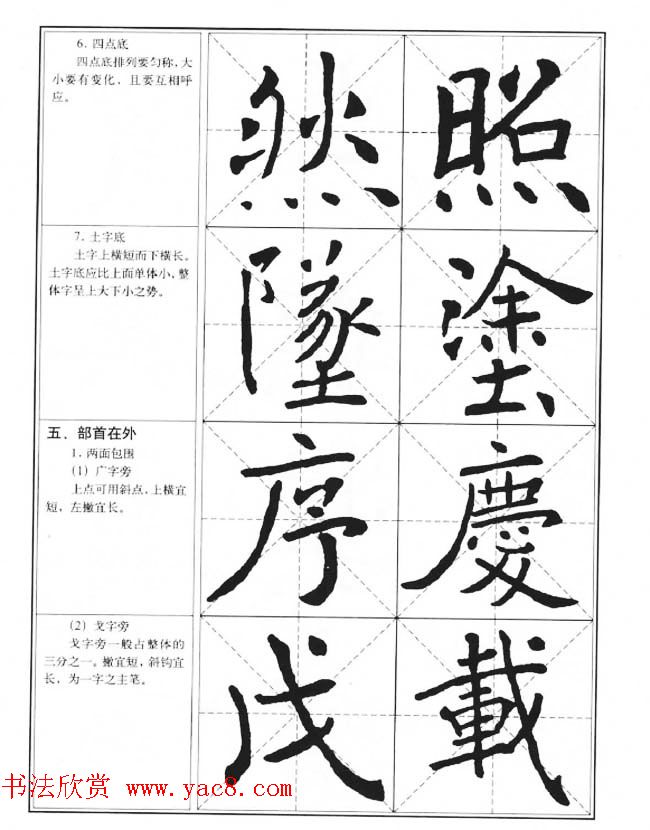 6. 四点底
四点底排列要匀称，大
小要有变化，且要互相呼
应。
然 照
7. 土字底
土字上横短而下横长。
土字底应比上面单体小，整
体字呈上大下小之势。
墜 塗
五、部首在外
1. 两面包围
(1) 广字旁
上点可用斜点，上横宜
短，左撇宜长。
序 慶
(2) 戈字旁
戈字旁一般占整体的
三分之一。撇宜短，斜钩宜
长，为一字之主笔。
戊 載
书法欣赏 www.yac8.com